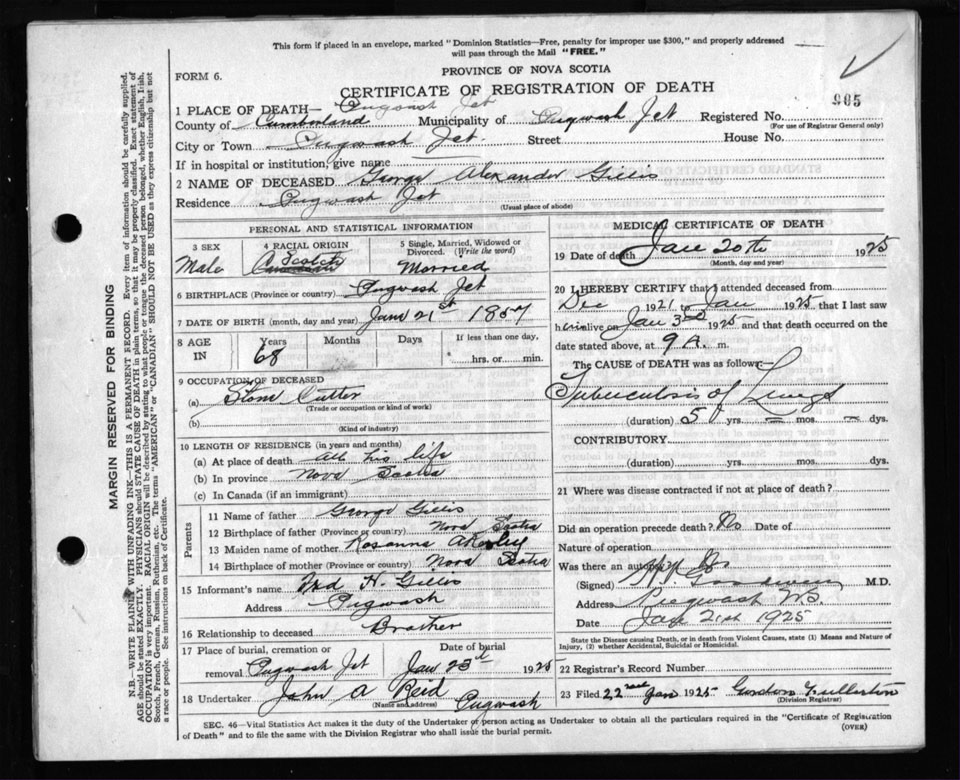 This form if placed in an envelope, marked "Dominion Statistics—Free, penalty for improper use $300," and properly addressed
will pass through the Mail "FREE."
FORM 6.
PROVINCE OF NOVA SCOTIA
CERTIFICATE OF REGISTRATION OF DEATH
905
1 PLACE OF DEATH— Pugwash Jct
County of Cumberland Municipality of Pugwash Jct Registered No.
(For use of Registrar General only)
City or Town Pugwash Jct. Street House No.
If in hospital or institution, give name
2 NAME OF DECEASED George Alexander Gillis
Residence Pugwash Jct
(Usual place of abode)
PERSONAL AND STATISTICAL INFORMATION
3 SEX 4 RACIAL ORIGIN 5 Single, Married, Widowed or
Divorced. (Write the word)
Male Scotch Married
6 BIRTHPLACE (Province or country) Pugwash Jct
7 DATE OF BIRTH (month, day and year) Jan 21st 1857
8 AGE
IN
Years Months Days If less than one day,
68 hrs. or min.
9 OCCUPATION OF DECEASED
(a) Stone Cutter
(Trade or occupation or kind of work)
(b)
(Kind of industry)
10 LENGTH OF RESIDENCE (in years and months)
(a) At place of death All his life
(b) In province Nova Scotia
(c) In Canada (if an immigrant)
Parents
11 Name of father George Gillis
12 Birthplace of father (Province or country) Nova Scotia
13 Maiden name of mother Rosanna Akerley
14 Birthplace of mother (Province or country) Nova Scotia
15 Informant's name H. Gillis
Address Pugwash
16 Relationship to deceased Brother
17 Place of burial, cremation or Date of burial
removal Pugwash Jct Jan 23rd 1925
18 Undertaker John A Reid Pugwash
(Name and address)
MEDICAL CERTIFICATE OF DEATH
19 Date of death Jan 20th 1925
(Month, day and year)
20 I HEREBY CERTIFY that I attended deceased from
Dec 1921 to Jan 1925 that I last saw
him alive on Jan 3rd 1925 and that death occurred on the
date stated above, at 9 A. m.
The CAUSE of DEATH was as follows:
Tuberculosis of Lungs
(duration) 5 yrs. — mos. — dys.
CONTRIBUTORY
(duration) yrs. mos. dys.
21 Where was disease contracted if not at place of death?
Did an operation precede death? No Date of
Nature of operation
Was there an autopsy? No
(Signed) M.D.
Address Pugwash N.S.
Date Jan 21st 1925
State the Disease causing Death, or in death from Violent Causes, state (1) Means and Nature of
Injury, (2) whether Accidental, Suicidal or Homicidal.
22 Registrar's Record Number
23 Filed 22nd Jan 1925 Gordon Fullerton
(Division Registrar)
SEC. 46—Vital Statistics Act makes it the duty of the Undertaker or person acting as Undertaker to obtain all the particulars required in the "Certificate of Registration
of Death" and to file the same with the Division Registrar who shall issue the burial permit.
(OVER)
MARGIN RESERVED FOR BINDING
N.B.—WRITE PLAINLY WITH UNFADING INK—THIS IS A PERMANENT RECORD. Every item of information should be carefully supplied.
AGE should be stated EXACTLY. PHYSICIANS should STATE CAUSE OF DEATH in plain terms, so that it may be properly classified. Exact statement of
OCCUPATION is very important. RACIAL ORIGIN will be described by stating to what people or tongue the deceased person belonged, whether English, Irish,
Scotch, French, German, Russian, Ruthenian, etc. The terms "AMERICAN" or "CANADIAN" SHOULD NOT BE USED as they express citizenship but not
a race or people. See instructions on back of Certificate.